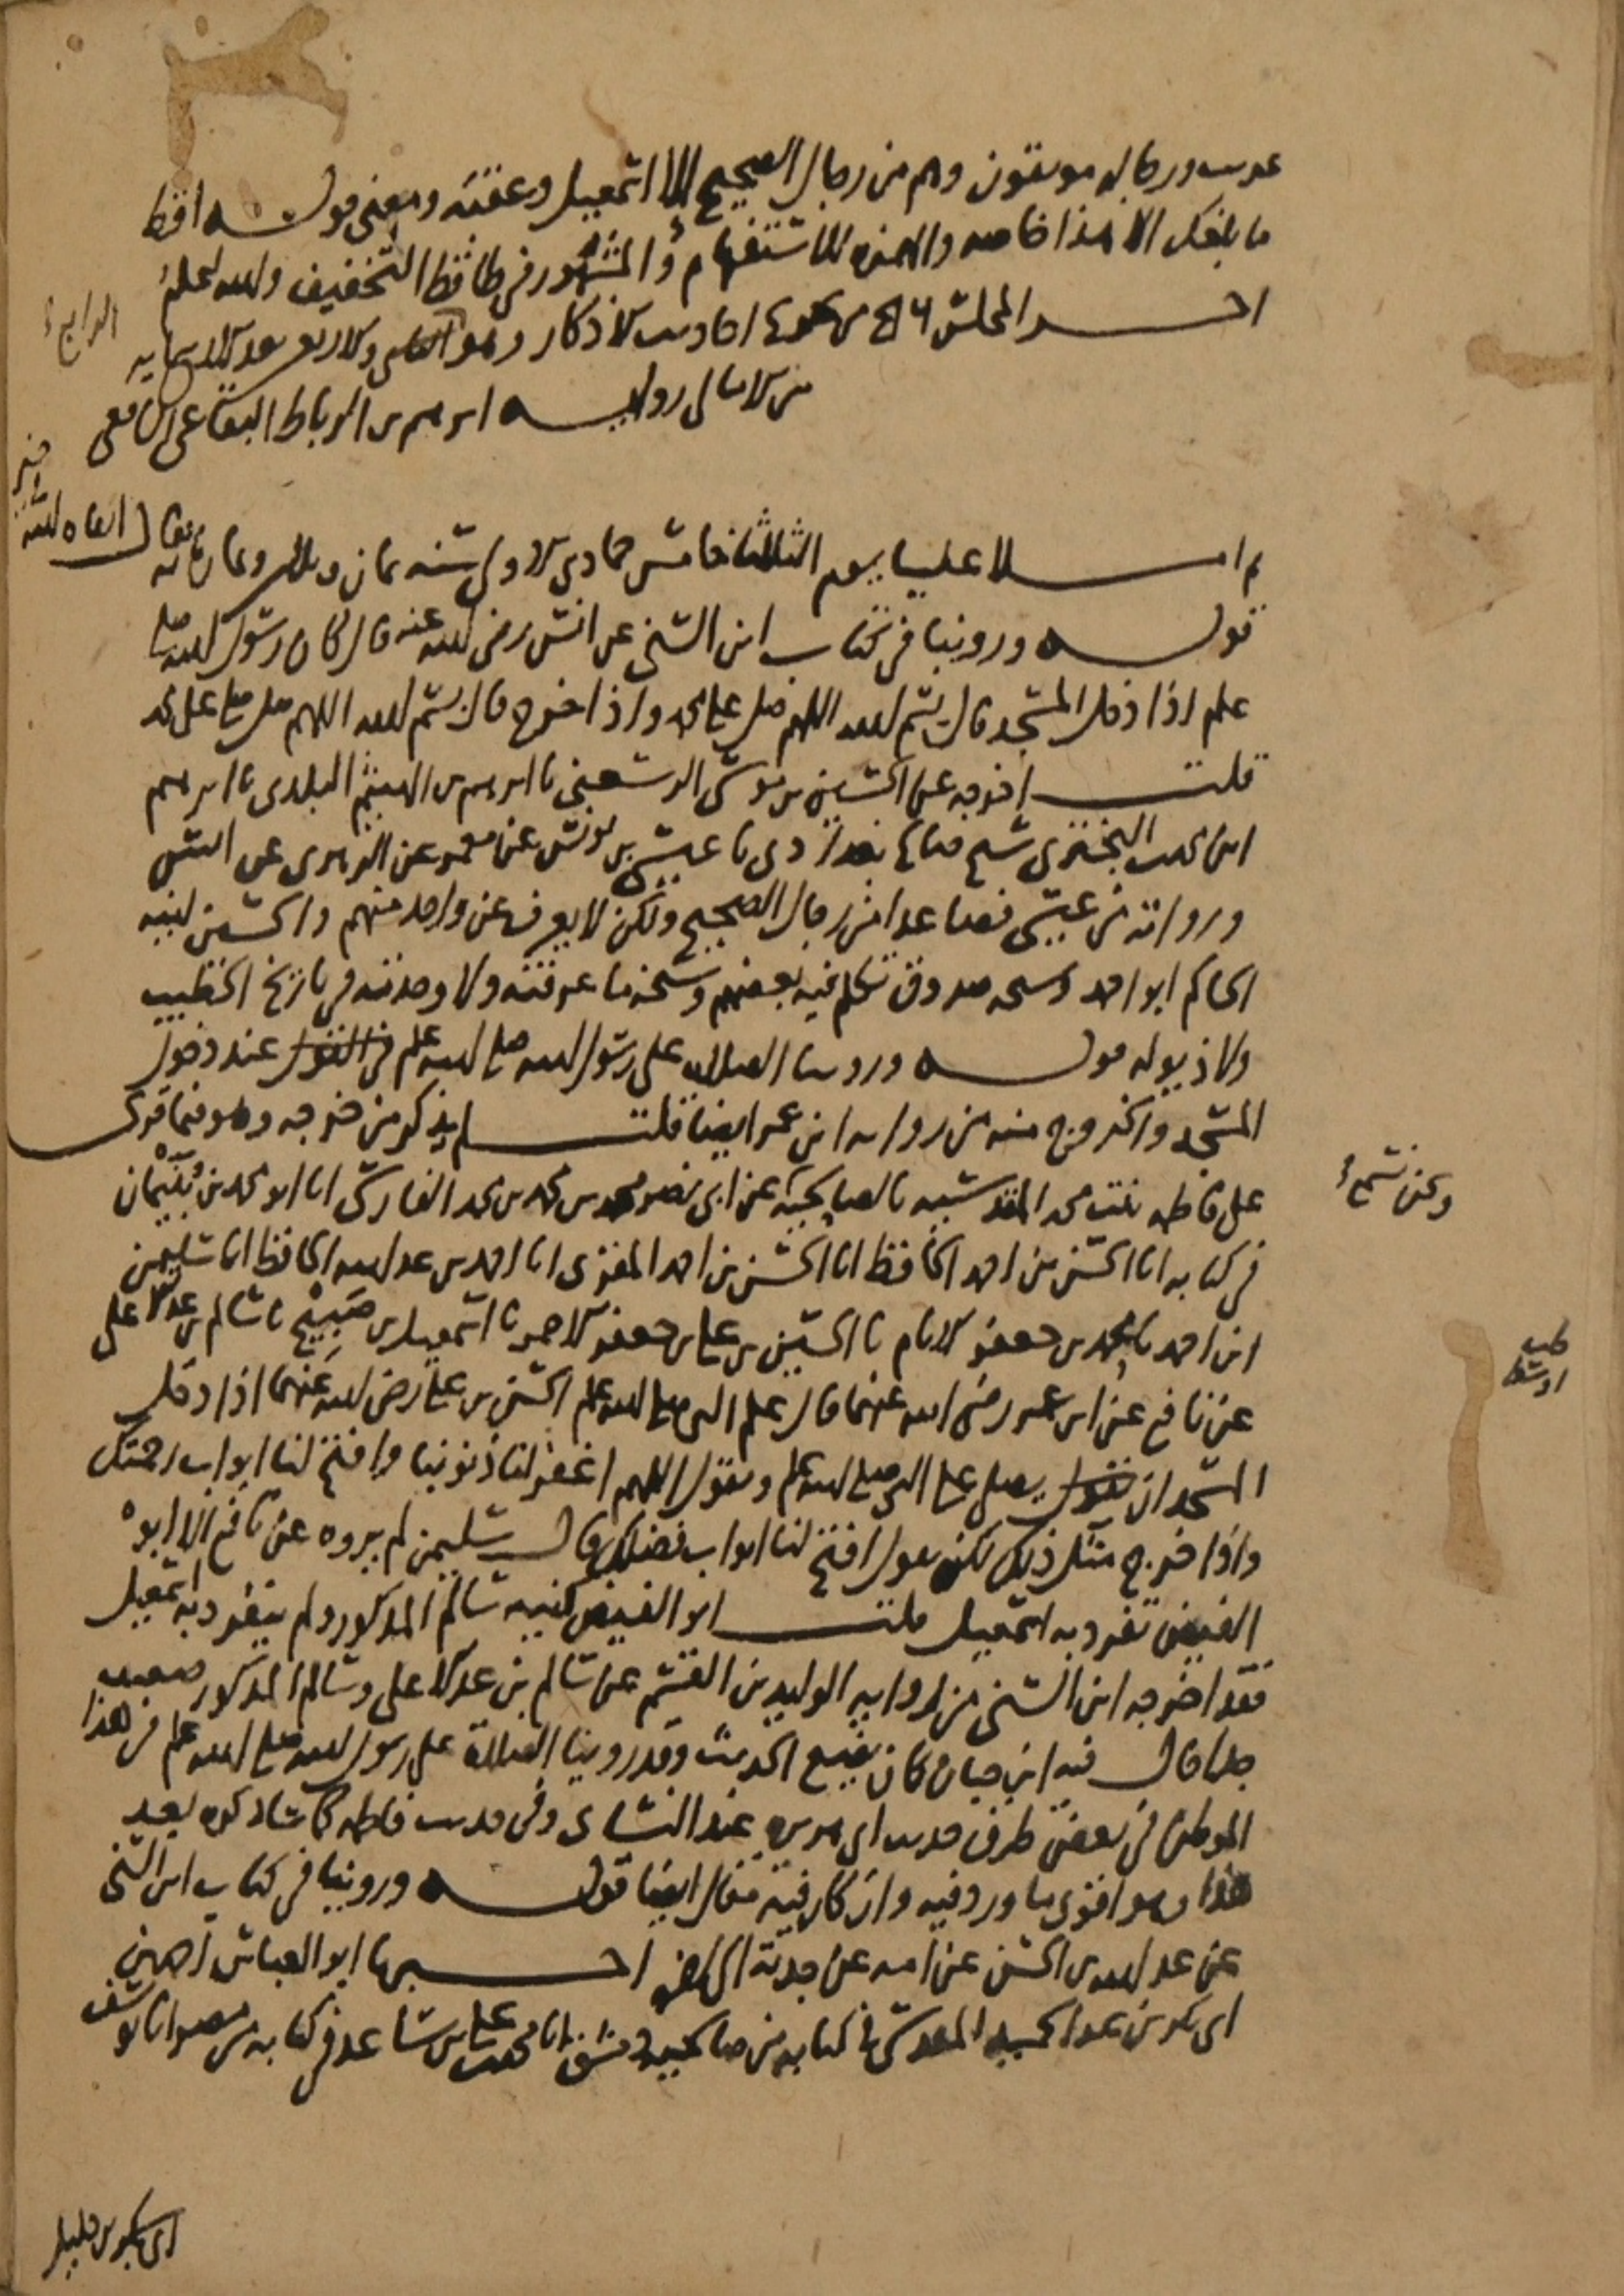 غريب ورجاله موثقون وهم من رجال الصحيح إلا اسمعيل وعقبة ومعنى قوله اقط
ما بلغك الا هذا خاصة والهمزة للاستفهام والمشهور في طاقط التخفيف والله اعلم
اخر المجلس من احاديث الاذكار وهو والاربعون بعد الاربعمايه
الرابع
من الامالي رواية ابرهيم بن الرباط البقاعي الشافعي
ثم املا علينا يوم الثلاثا خامس جمادى الاولى سنة ثمان وثلاثين وثمان مائة فقال ابقاه الله
قوله وروينا في كتاب ابن السني عن انس رضي الله عنه قال كان رسول الله صلى
علم اذا دخل المسجد قال بسم الله اللهم صل على محمد واذا خرج قال بسم الله اللهم صل على محمد
قلت اخرجه عن الحسين بن موسى الرسعني نا ابرهيم بن الهيثم البلدي نا ابرهيم
ابن محمد البختري شيخ صالح بغدادي نا عيسى بن يونس عن معمر عن الزهري عن انس
ورواته من عيسى فصاعدا من رجال الصحيح ولكن لا يعرف عن واحد منهم والحسين لينه
الحاكم ابو احمد وشيخه صدوق تكلم فيه بعضهم وشيخه ما عرفته ولا وجدته في تاريخ الخطيب
ولا ذيوله قوله وروينا الصلاة على رسول الله صلى الله علم عند دخول
المسجد والخروج منه من رواية ابن عمر ايضا قلت لم يذكر من خرجه وهو فيما قرئ
على فاطمة بنت محمد المقدسية بالصالحية عن ابي نصر محمد بن محمد بن محمد الفارسي انا ابو محمد بن بنيمان
ونحن نسمع
في كتابه انا الحسن بن احمد الحافظ انا الحسن بن احمد المقرئ انا احمد بن عبد الله الحافظ انا سليمن
ابن احمد نا محمد بن جعفر الامام نا الحسين بن علي بن جعفر الاحمر نا اسمعيل بن صبيح نا سالم بن عبد الاعلى
عن نافع عن ابن عمر رضي الله عنهما قال علم النبي صلى الله علم الحسن بن علي رضي الله عنهما اذا دخل
المسجد ان يصلي على النبي صلى الله علم ويقول اللهم اغفر لنا ذنوبنا وافتح لنا ابواب رحمتك
واذا خرج مثل ذلك لكن يقول افتح لنا ابواب فضلك قال سليمن لم يروه عن نافع الا ابو
الفيض تفرد به اسمعيل قلت ابو الفيض كنية سالم المذكور ولم ينفرد به اسمعيل
فقد اخرجه ابن السني من رواية الوليد بن القسم عن سالم بن عبد الاعلى وسالم المذكور ضعيف
جدا قال فيه ابن حبان كان يضع الحديث وقد روينا الصلاة على رسول الله صلى الله علم في هذا
الموطن في بعض طرق حديث ابي هريرة عند النسائي وفي حديث فاطمة كما سأذكره بعيد
هذا وهو اقوى ما ورد فيه وان كان فيه مقال ايضا قوله وروينا في كتاب ابن السني
عن عبد الله بن الحسن عن امه عن جدته الى اخره اخبرنا ابو العباس احمد بن
ابي بكر بن عبد الحميد المقدسي في كتابه من صالحية دمشق انا محمد بن علي بن ساعد في كتابه من مصر انا يوسف
ابن خليل